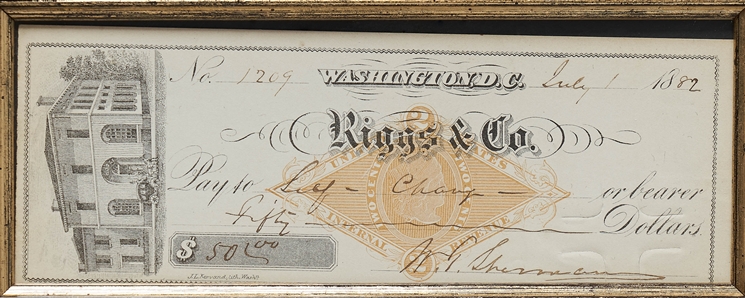 No. 1209 WASHINGTON, D.C. July 1 1882
Riggs & Co.
UNITED STATES
Pay to Self - Change - or bearer
Fifty Dollars.
TWO CENTS
INTERNAL REVENUE
$ 50.00
W. T. Sherman
J.L. lith. Wash.